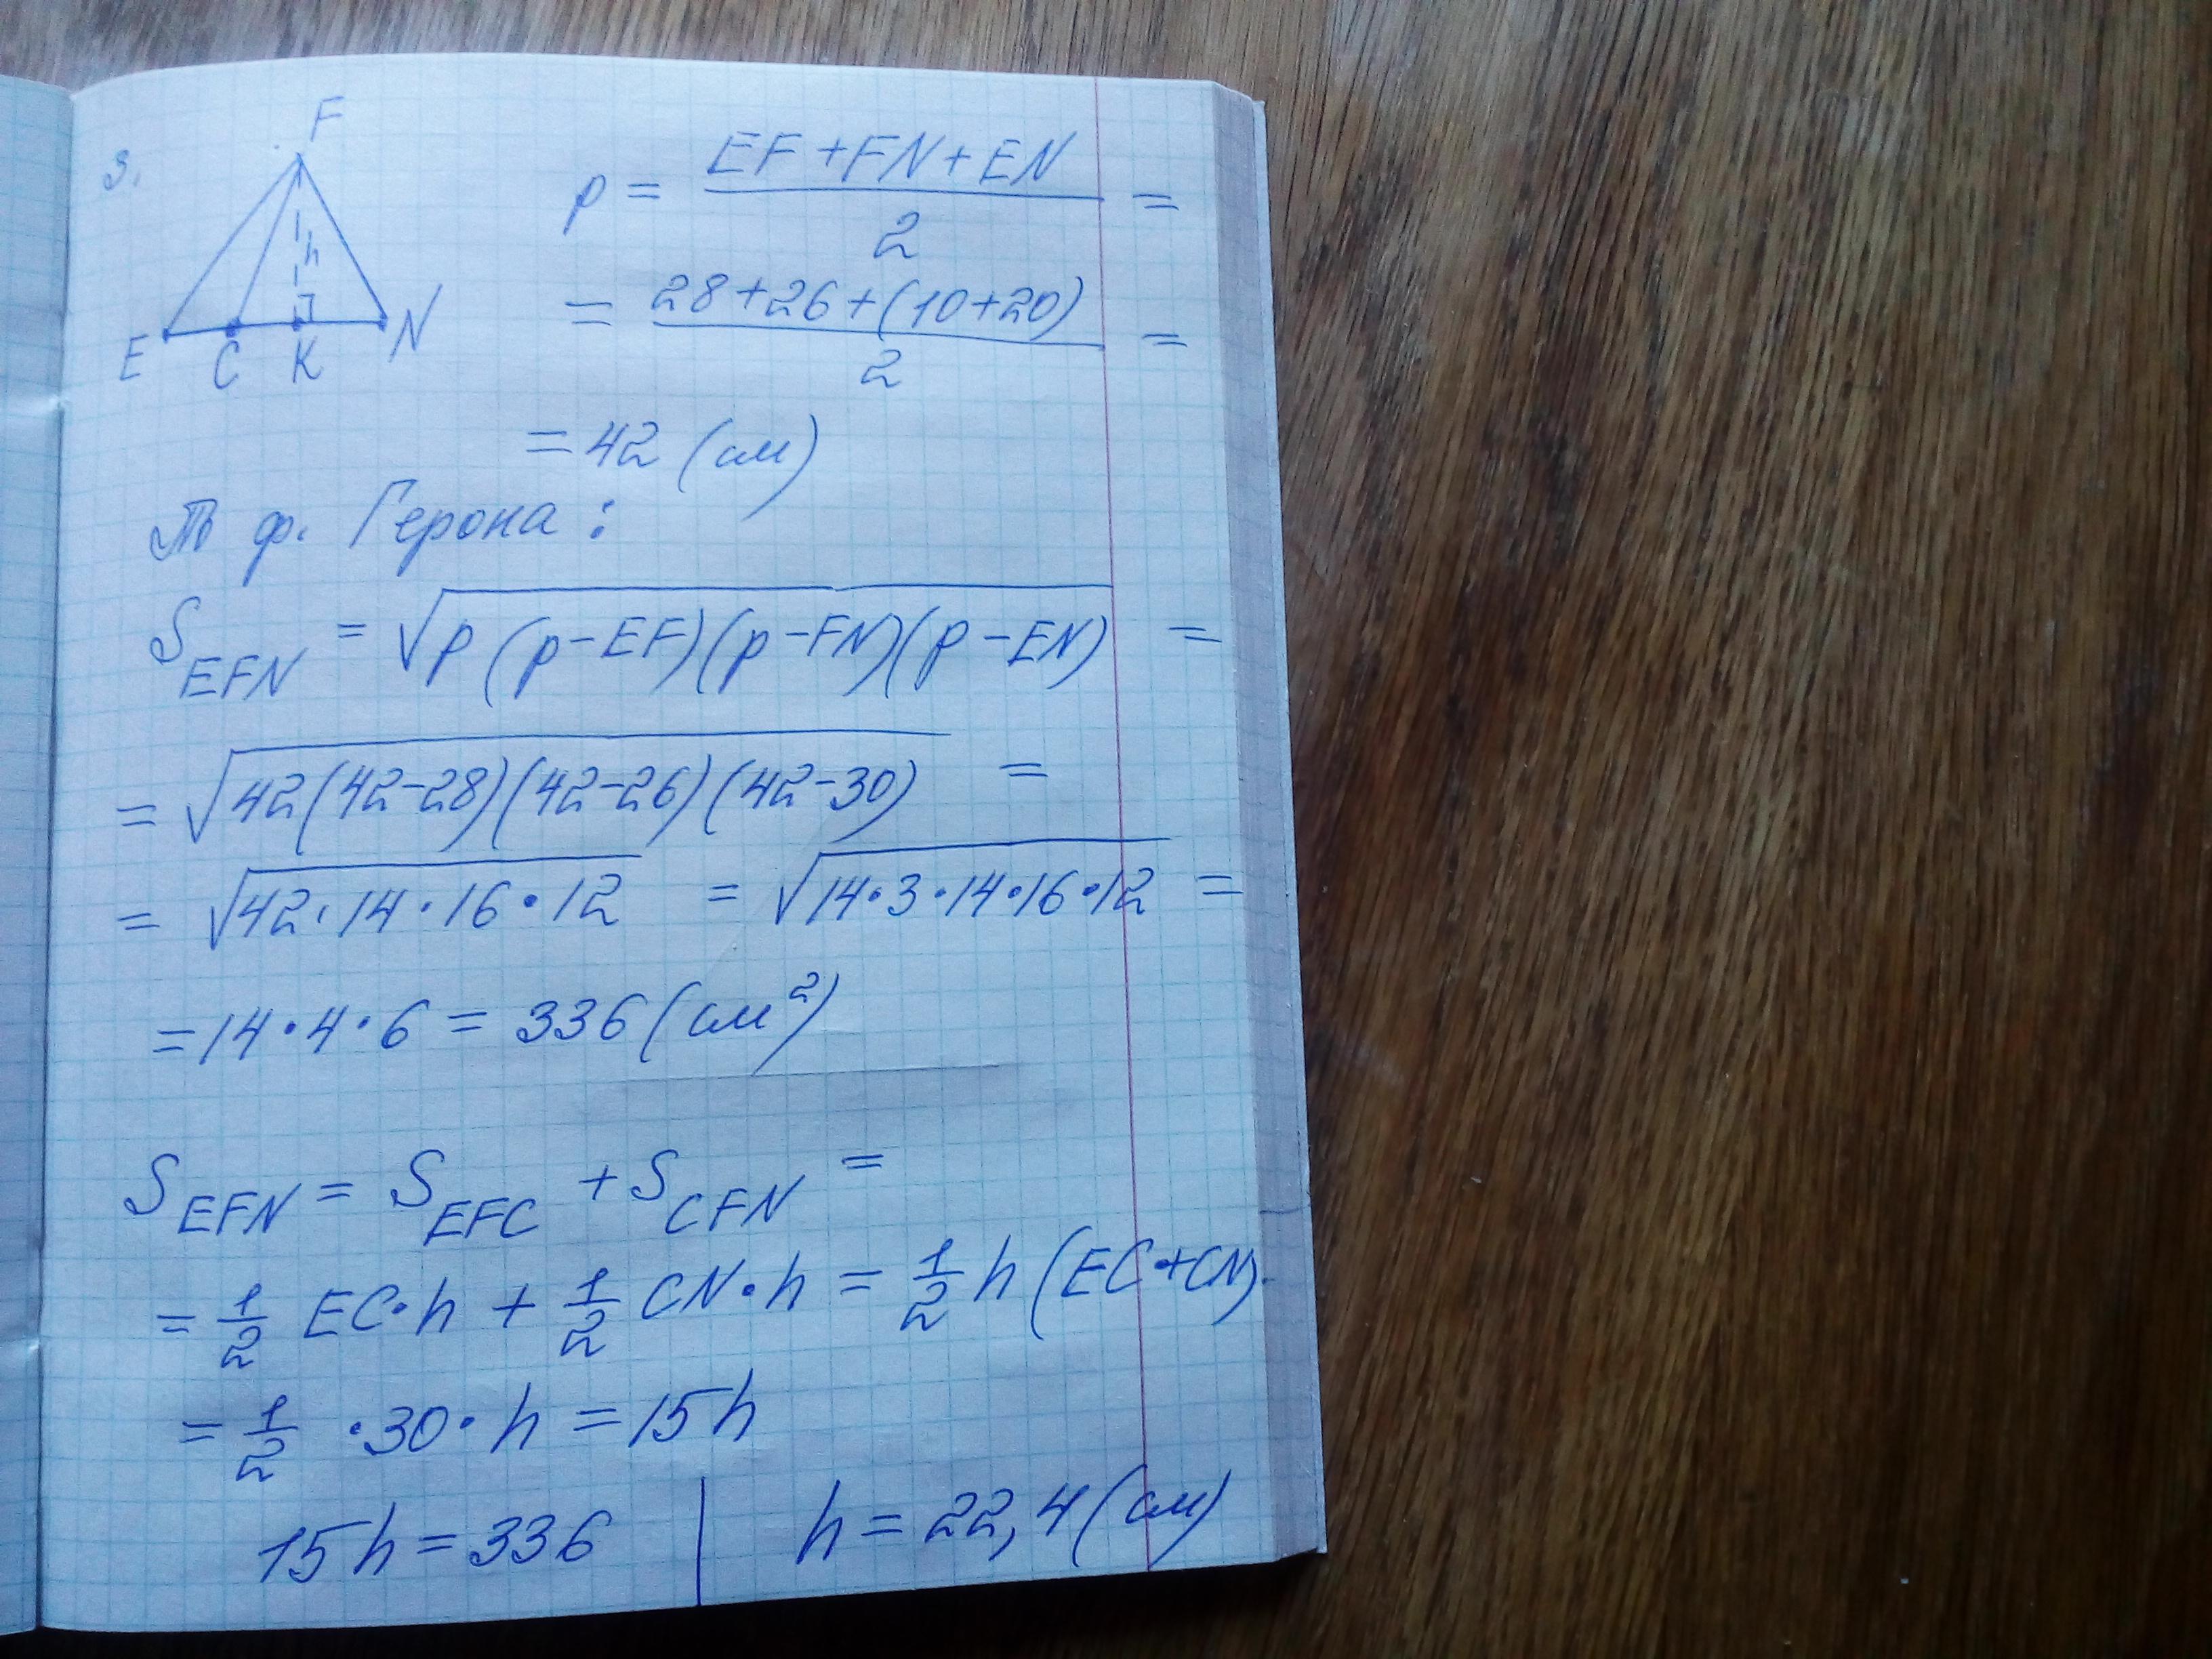 3.
F
h
E C K N
p = \frac{EF + FN + EN}{2} =
= \frac{28 + 26 + (10 + 20)}{2} =
= 42 (см)
ф. Герона :
S_{EFN} = \sqrt{p (p - EF)(p - FN)(p - EN)} =
= \sqrt{42(42-28)(42-26)(42-30)} =
= \sqrt{42 \cdot 14 \cdot 16 \cdot 12} = \sqrt{14 \cdot 3 \cdot 14 \cdot 16 \cdot 12} =
= 14 \cdot 4 \cdot 6 = 336 (см^2)
S_{EFN} = S_{EFC} + S_{CFN} =
= \frac{1}{2} EC \cdot h + \frac{1}{2} CN \cdot h = \frac{1}{2} h (EC + CN)
= \frac{1}{2} \cdot 30 \cdot h = 15h
15h = 336 | h = 22,4 (см)